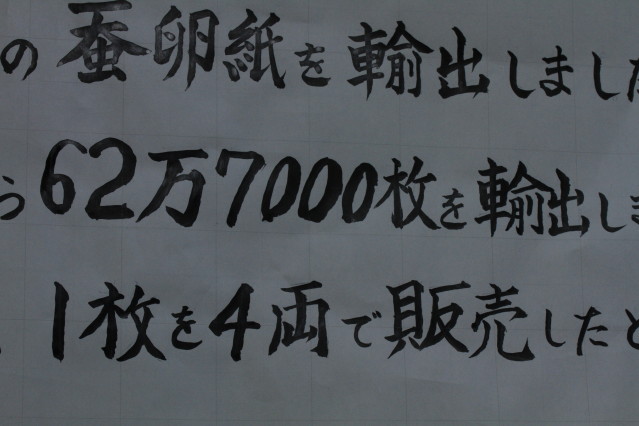 の蚕卵紙を輸出しました
ら62万7000枚を輸出しま
1枚を4両で販売したと